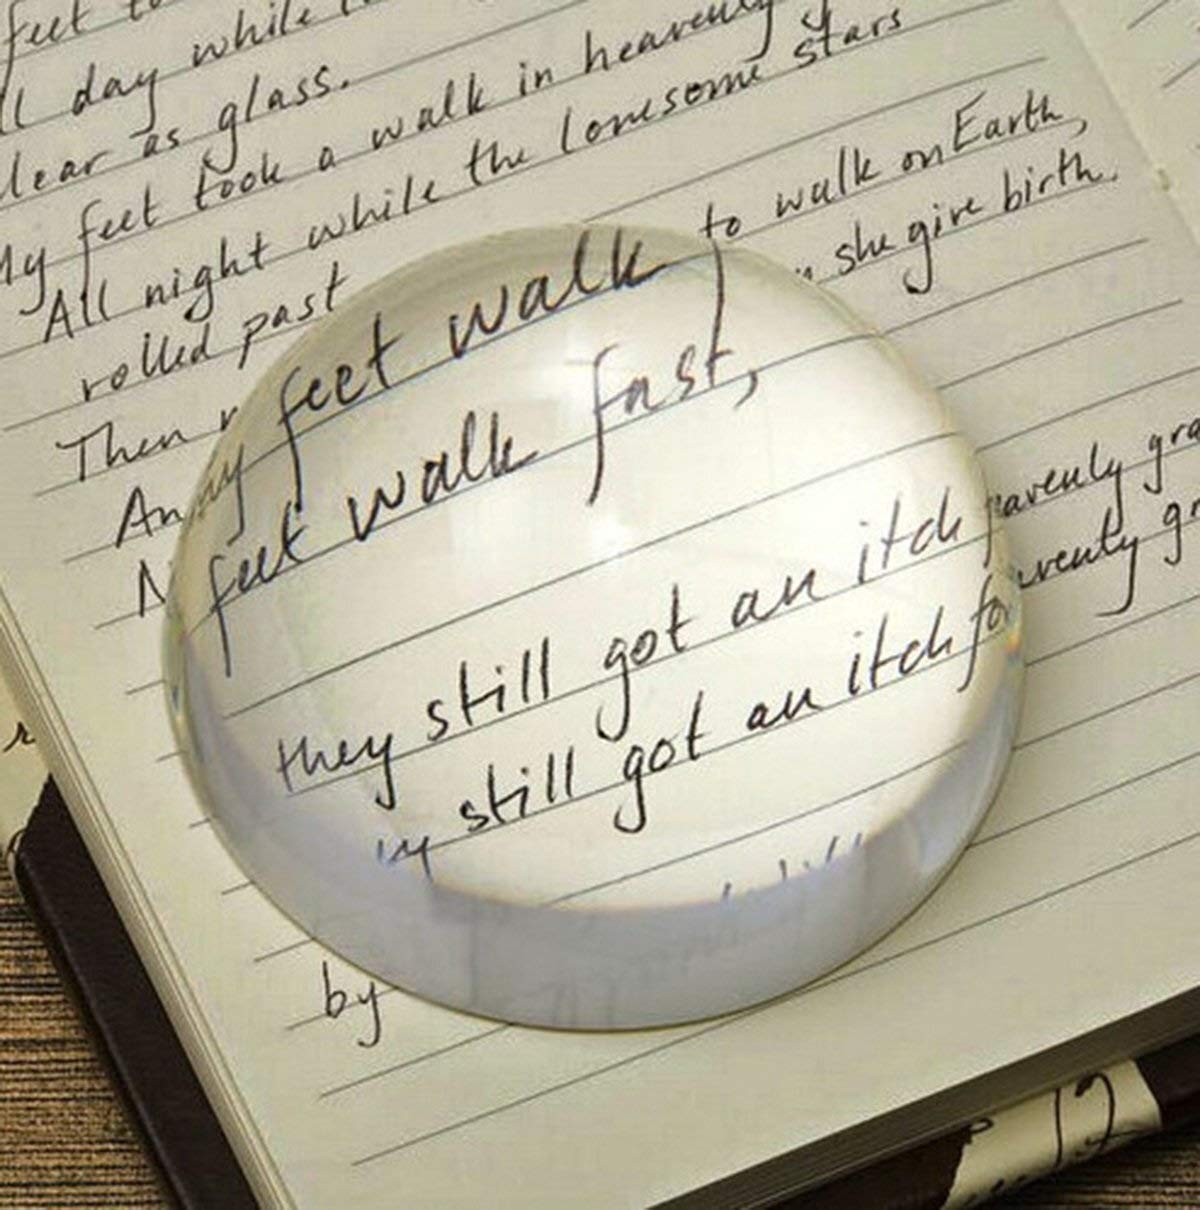 feet to
ll day while
lear as glass.
My feet took a walk in heavenly
All night while the lonesome stars
rolled past
Then my feet walk to walk on Earth,
An she give birth.
N feet walk fast,
they still got an itch eavenly gra
still got an itch for avenly gr
by